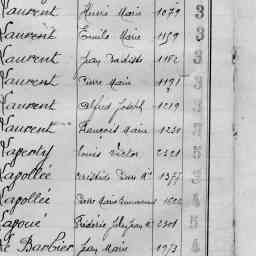 Laurent Henri Marie 1079 3
Laurent Emile Marie 1159 3
Laurent Jean 1182 3
Laurent Pierre Marie 1191 3
Laurent Alfred Joseph 1219 3
Laurent François Marie 1230 3
Louis Victor 2321 5
Lapollée 1377 3
Lapollée Pierre Marie 4
Lapoué Frédéric 2301 5
Le Barbier Jean Marie 1973 4